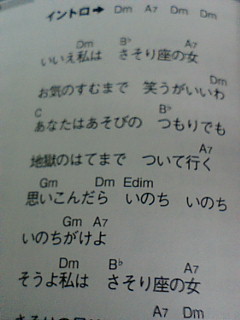 イントロ➔ Dm A7 Dm Dm
Dm B♭ A7
いいえ私は さそり座の女
Dm
お気のすむまで 笑うがいいわ
C B♭
あなたはあそびの つもりでも
A7
地獄のはてまで ついて行く
Gm Dm Edim
思いこんだら いのち いのち
Gm A7
いのちがけよ
Dm B♭ A7
そうよ私は さそり座の女
A7 Dm